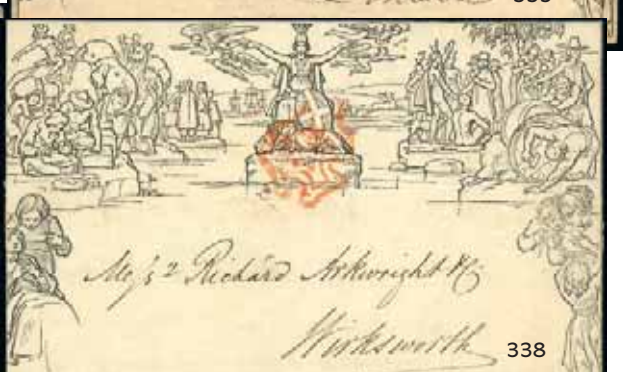 Mess Richard Arkwright & Co
Wirksworth
338